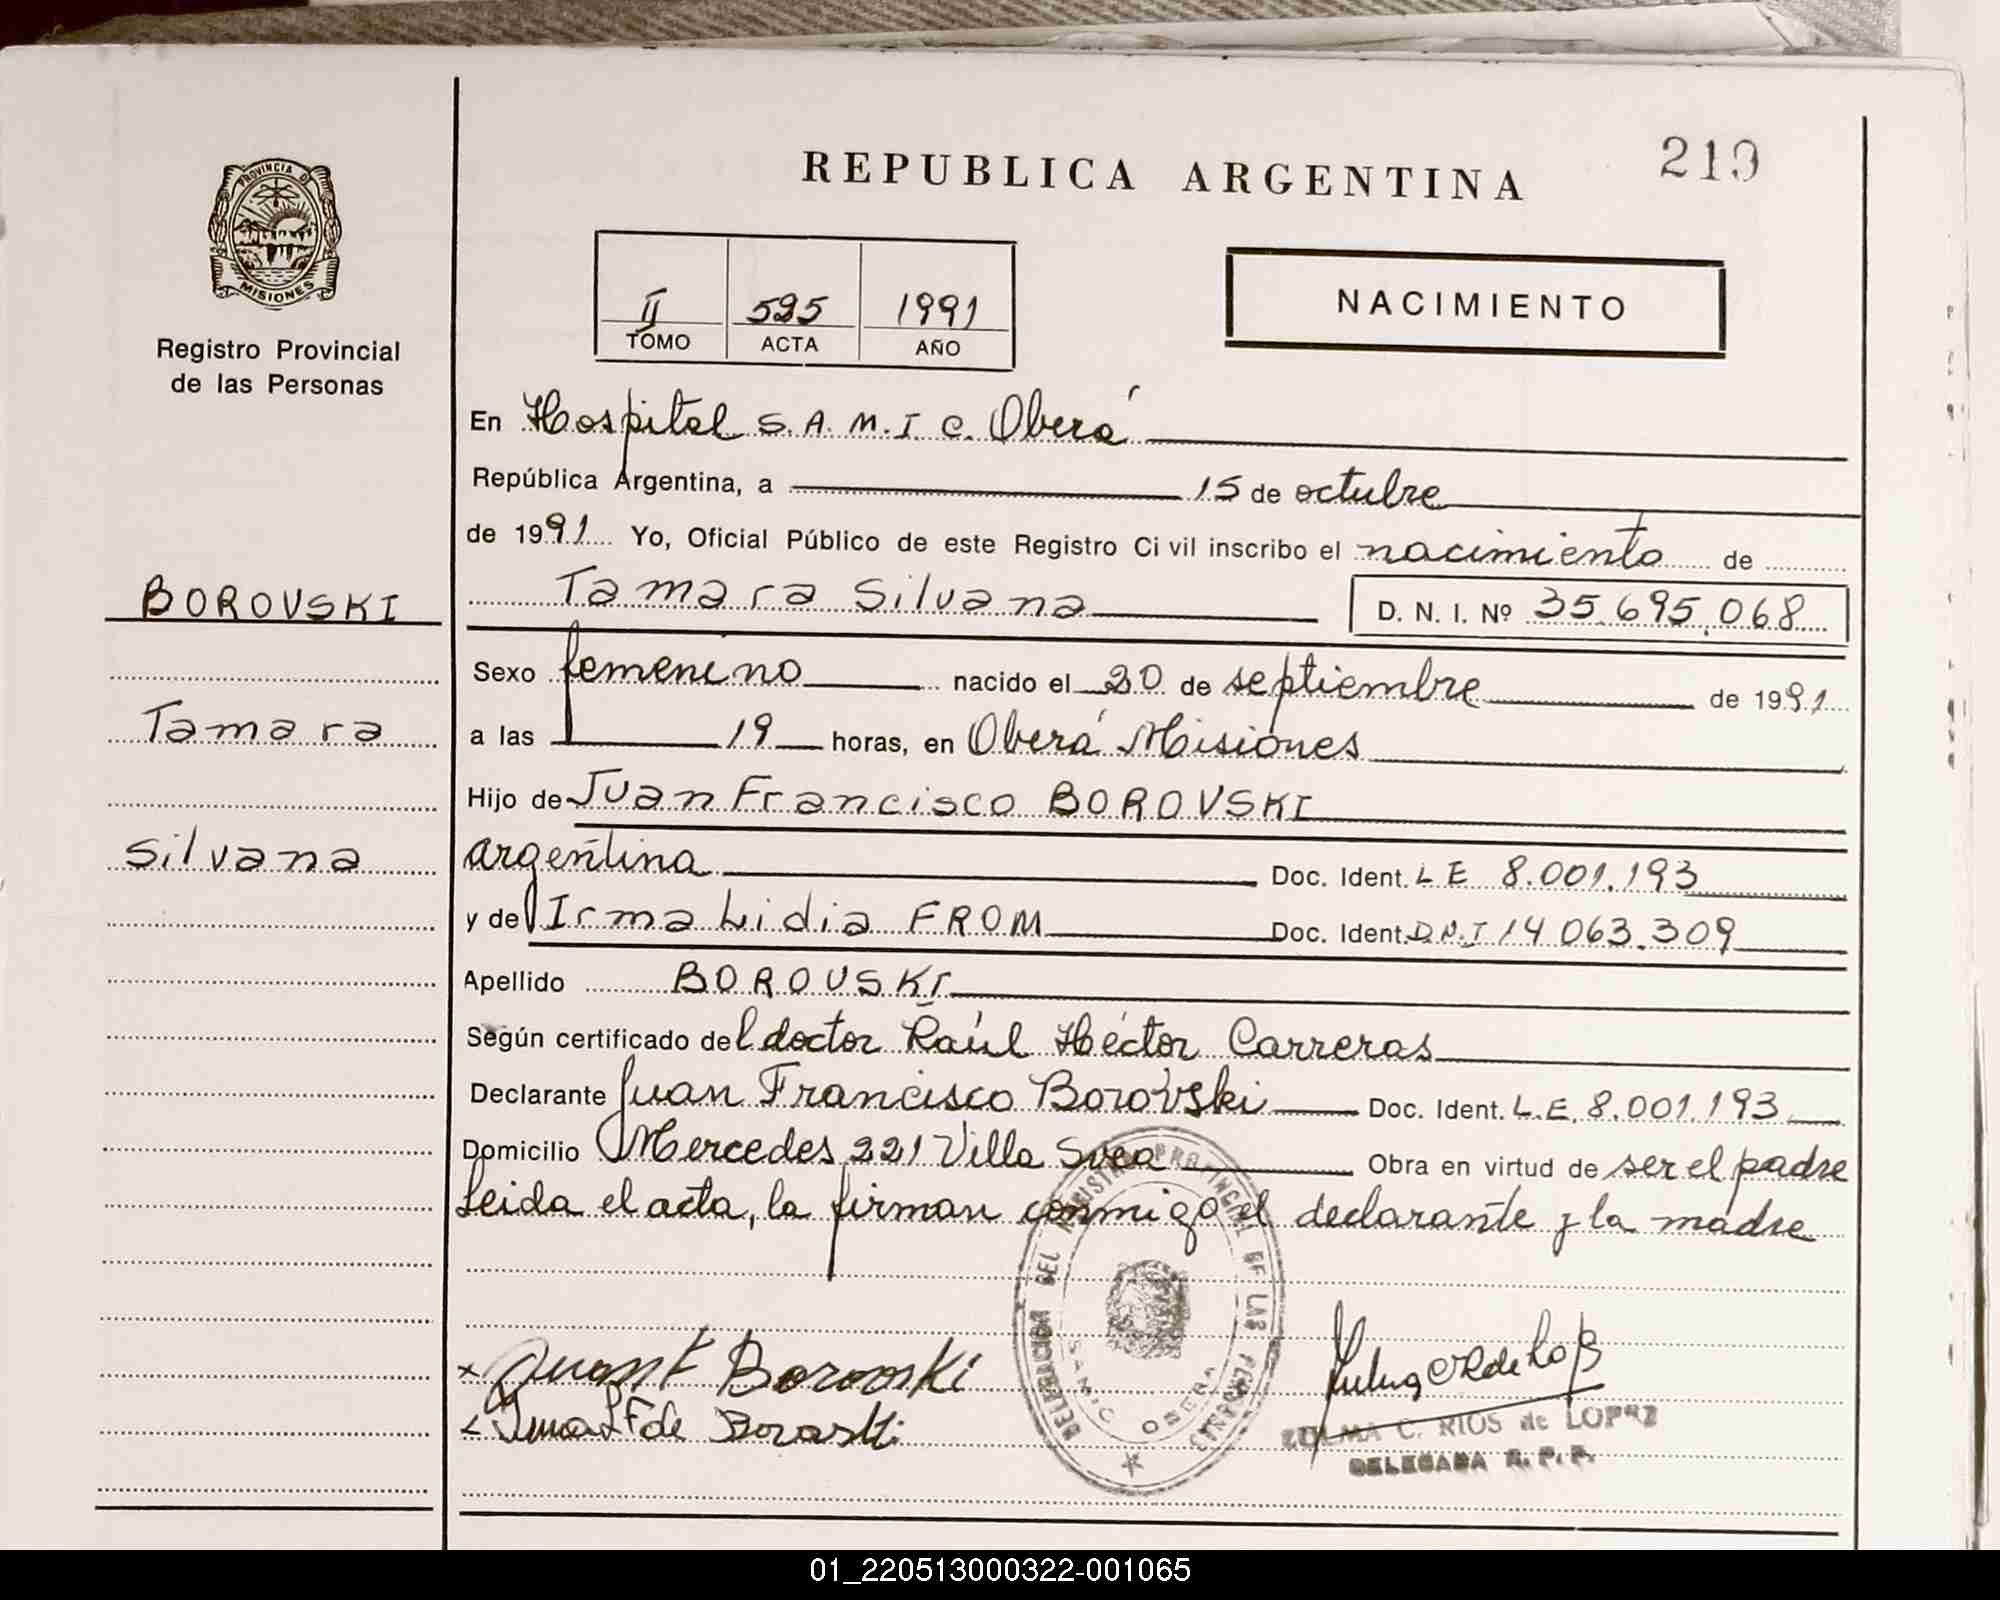 REPUBLICA ARGENTINA
219
PROVINCIA D
MISIONES
Registro Provincial
de las Personas
II 595 1991
TOMO ACTA AÑO
NACIMIENTO
En Hospital S.A.M.I.C. Oberá
República Argentina, a 15 de octubre
de 1991 Yo, Oficial Público de este Registro Civil inscribo el nacimiento de
Tamara Silvana D. N. I. Nº 35.695.068
BOROVSKI
Tamara
Silvana
Sexo femenino nacido el 20 de septiembre de 1991
a las 19 horas, en Oberá Misiones
Hijo de Juan Francisco BOROVSKI
argentina Doc. Ident. L E 8.001.193
y de Irma Lidia FROM Doc. Ident. D.N.I 14 063.309
Apellido BOROVSKI
Según certificado del doctor Raúl Héctor Carreras
Declarante Juan Francisco Borovski Doc. Ident. L.E. 8.001.193
Domicilio Mercedes 221 Villa Svea Obra en virtud de ser el padre
Leida el acta, la firman conmigo el declarante y la madre
DELEGACION DEL REGISTRO PROVINCIAL DE LAS PERSONAS
SAMIC OBERA
x Juan F Borovski
x Irma L F de Borovski
ZULMA C. RIOS de LOPEZ
DELEGADA R. P. P.
01_220513000322-001065